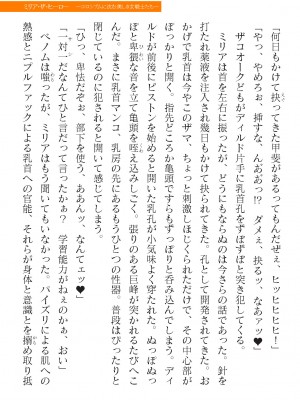 「何日もかけて抉ってきた甲斐があるってもんだぜぇ、ヒッヒヒヒヒ！」
「やっ、やめろぉ、挿すな、んああっっ!?　ダメぇ、抉るッ、なあァッ♥」
ザコオークどもがディルド片手に乳首孔をずぼずぼと突き犯してくる。
ミリアは首を左右に振ったが、どうにもならぬのは今さらの話であった。針を
打たれ薬液を注入され幾日もかけて抉られてきた。孔として開発されてきた。お
かげで乳首は今やこのザマ、ちょっと刺激しほじくられただけで、その中心部が
ぽっかりと開く。指先どころか亀頭ですらもずっぽりと呑み込んでしまう。ディ
ルドが前後にピストンを始めると開いた乳孔が気味よく穿たれた。ぬっぽぬっっ
ぽと卑猥な音を立て亀頭を咥え込みしごく。張りのある巨峰が突かれるたびへこ
んだ。まさに乳首マンコ、乳房の先にあるもうひとつの性器。普段はぴったりと
閉じているのに犯されると開いて感じてしまう。
「ひっ、卑怯だぞお、部下を使う、ああんッ、なんてェッ♥」
「一対一だなんてひと言だって言ったかぁ？　学習能力がねぇのかぁ、おい」
ベノムは嗤ったが、ミリアはもう聞いてもいなかった。パイズリによる肌への
熱感とニプルファックによる乳首への官能、それらが身体と意識とを搦め取り抵